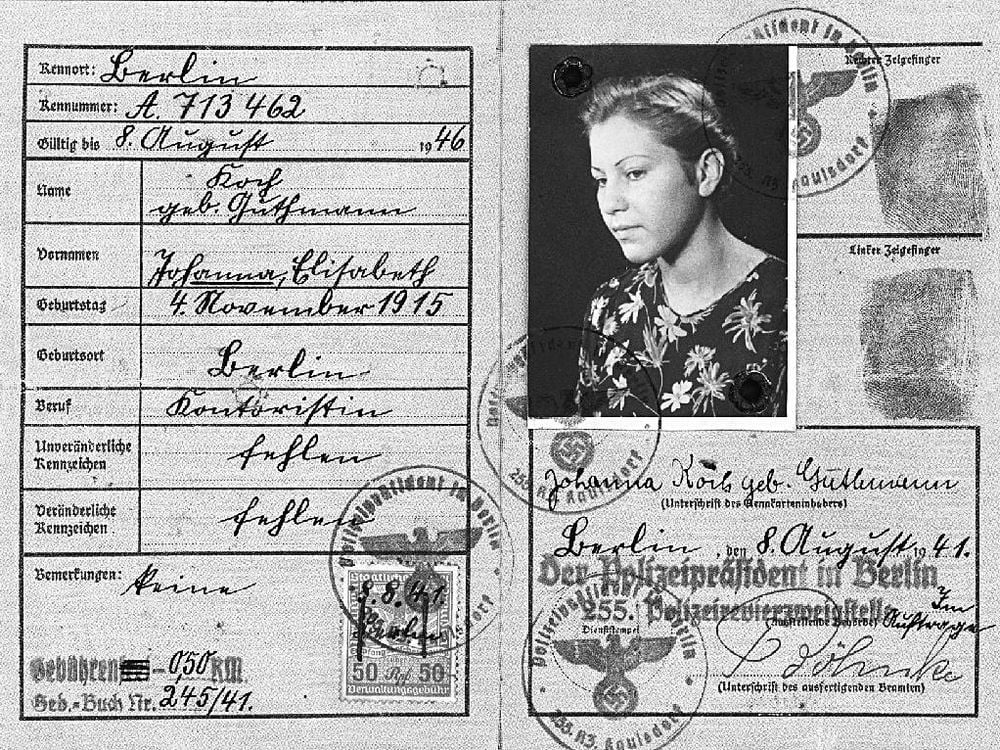 Kennort: Berlin
Kennummer: A. 713 462
Gültig bis 8. August 1946
Name Koch
geb. Guthmann
Vornamen Johanna, Elisabeth
Geburtstag 4. November 1915
Geburtsort Berlin
Beruf Kontoristin
Unveränderliche
Kennzeichen fehlen
Veränderliche
Kennzeichen fehlen
Bemerkungen: keine
Der Polizeipräsident in Berlin
8.8.41
50 Rpf 50
Verwaltungsgebühr
Gebühren -0,50 RM.
Geb.-Buch Nr. 245/41.
Polizeipräsident in Berlin
255. R3. Kaulsdorf
Rechter Zeigefinger
Linker Zeigefinger
255. R3. Kaulsdorf
Johanna Koch geb. Guthmann
(Unterschrift des Kennkarteninhabers)
Berlin, den 8. August 1941.
Der Polizeipräsident in Berlin
255. Polizeirevierzweigstelle
Im
Auftrage
(Ausstellende Behörde)
Dienststempel
Polizeipräsident in Berlin
255. R3. Kaulsdorf
Böhnke
(Unterschrift des ausfertigenden Beamten)